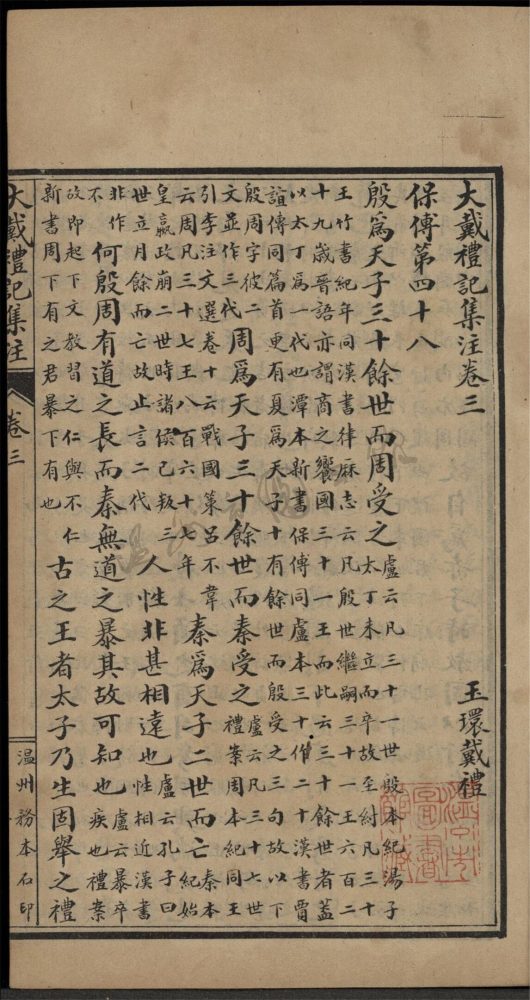 大戴禮記集注卷三　玉環戴禮
保傅第四十八
殷為天子三十餘世而周受之
盧云凡三十一世殷本紀湯子
太丁未立而卒故至紂凡三十
王竹書紀年同漢書律厤志云凡殷世繼嗣三十一王六百二
十九歲晉語亦謂商之饗國三十一王而此云三十餘世者蓋
以太丁為一代也潭本新書保傅同盧本三十作二十漢書賈
誼傳同篇首更有夏為天子十有餘世而殷受之三句故以下
殷周字彼二
文並作三代
周為天子三十餘世而秦受之
盧云凡三十七世
禮案周本紀同王
引李注文選卷十云戰國策呂不韋
云周凡三十七王八百六十七年
秦為天子二世而亡
秦本
紀始
皇嬴政崩二世時諸侯已叛三
世立月餘而亡故止言二代
人性非甚相遠也
盧云孔子曰
性相近漢書
非作
不
何殷周有道之長而秦無道之暴其故可知也
盧云暴卒
疾也禮案
故即起下文教習之仁與不仁
新書周下有之君暴下有也
古之王者太子乃生固舉之禮
大戴禮記集注
卷三
温州務本石印